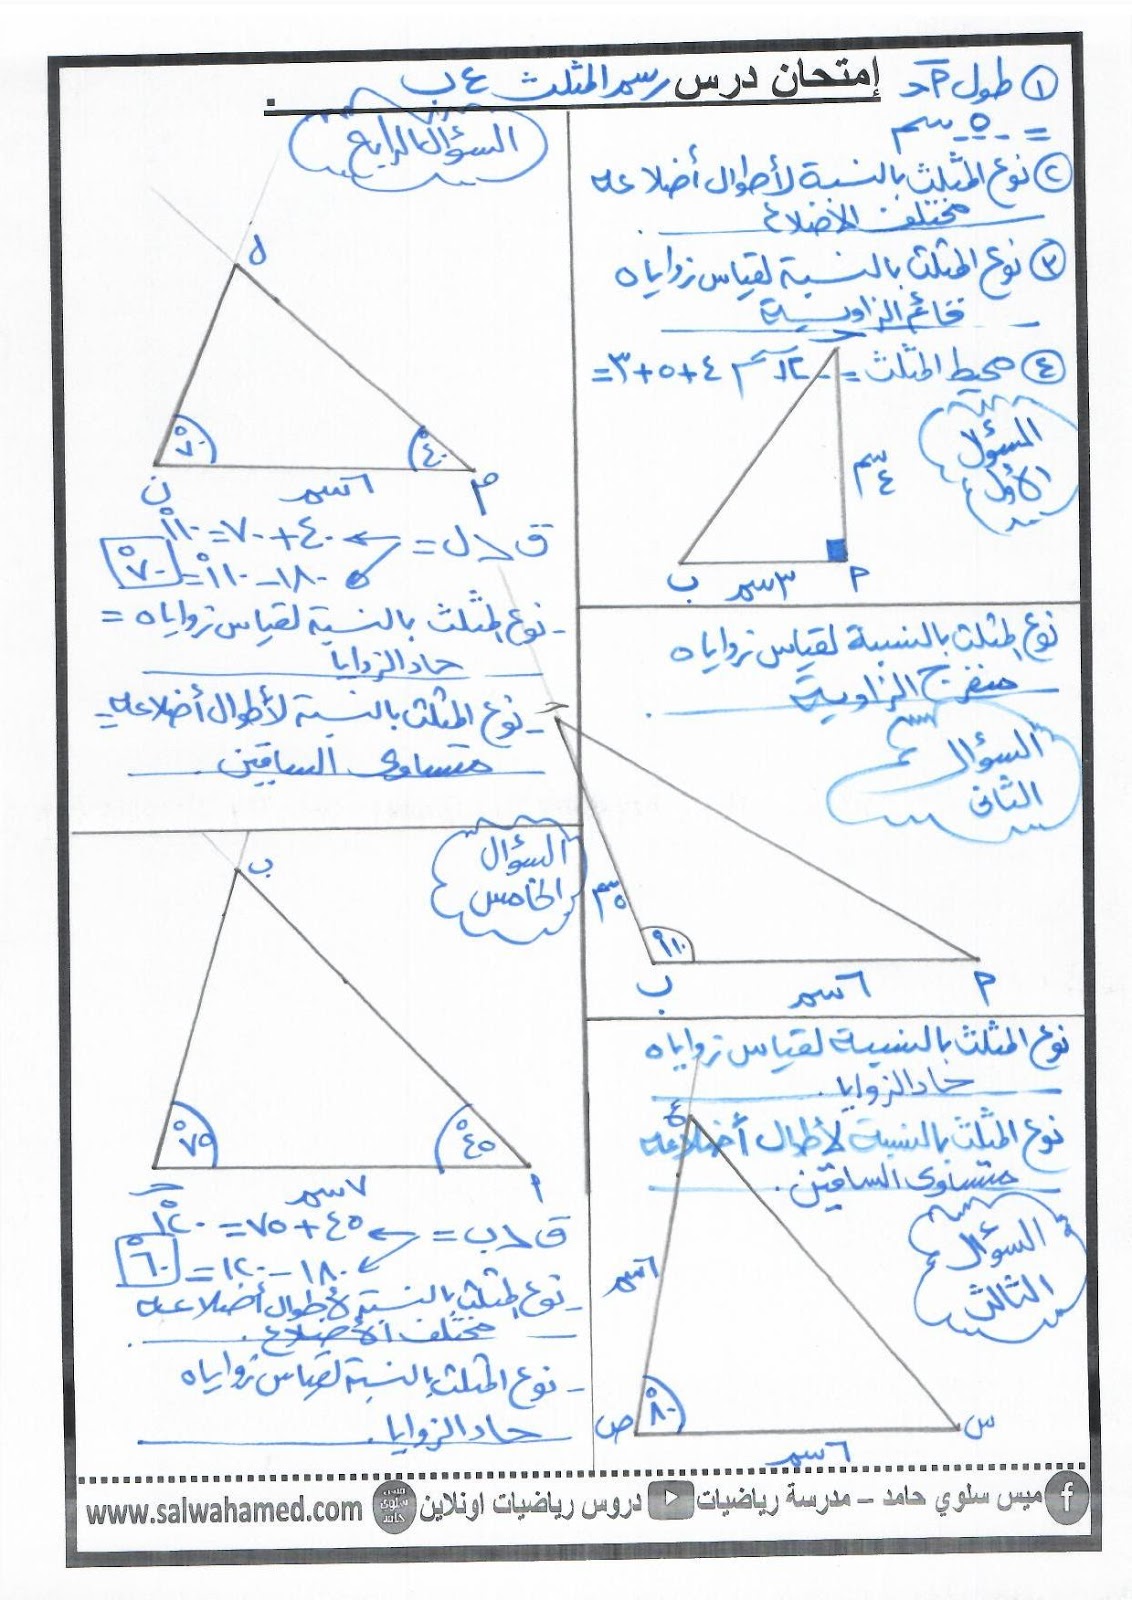 إمتحان درس رسم المثلث ع ب
① طول م حـ
= ٥ سم
② نوع المثلث بالنسبة لأطوال أضلاعه
مختلف الأضلاع
③ نوع المثلث بالنسبة لقياس زواياه
قائم الزاوية
④ محيط المثلث = ١٢سم ٤+٥+٣=
السؤال
الأول
حـ
٤سم
ب
٣سم
م
نوع المثلث بالنسبة لقياس زواياه
منفرج الزاوية
السؤال
الثانى
حـ
٥سم
١١٠°
ب
٦سم
م
نوع المثلث بالنسبة لقياس زواياه
حاد الزوايا.
نوع المثلث بالنسبة لأطوال أضلاعه
متساوى الساقين.
السؤال
الثالث
ع
٦سم
٨٠°
ص
٦سم
س
السؤال الرابع
ل
٧٠°
٤٠°
ن
٦سم
م
ق > ل = ٤٠+٧٠=١١٠°
١٨٠-١١٠°= ٧٠°
- نوع المثلث بالنسبة لقياس زواياه =
حاد الزوايا
- نوع المثلث بالنسبة لأطوال أضلاعه =
متساوى الساقين
السؤال
الخامس
ب
٧٥°
٤٥°
حـ
٧سم
ا
ق > ب = ٤٥+٧٥=١٢٠°
١٨٠-١٢٠= ٦٠°
- نوع المثلث بالنسبة لأطوال أضلاعه
مختلف الأضلاع.
- نوع المثلث بالنسبة لقياس زواياه
حاد الزوايا.
ميس سلوي حامد – مدرسة رياضيات دروس رياضيات اونلاين ميس سلوى حامد www.salwahamed.com